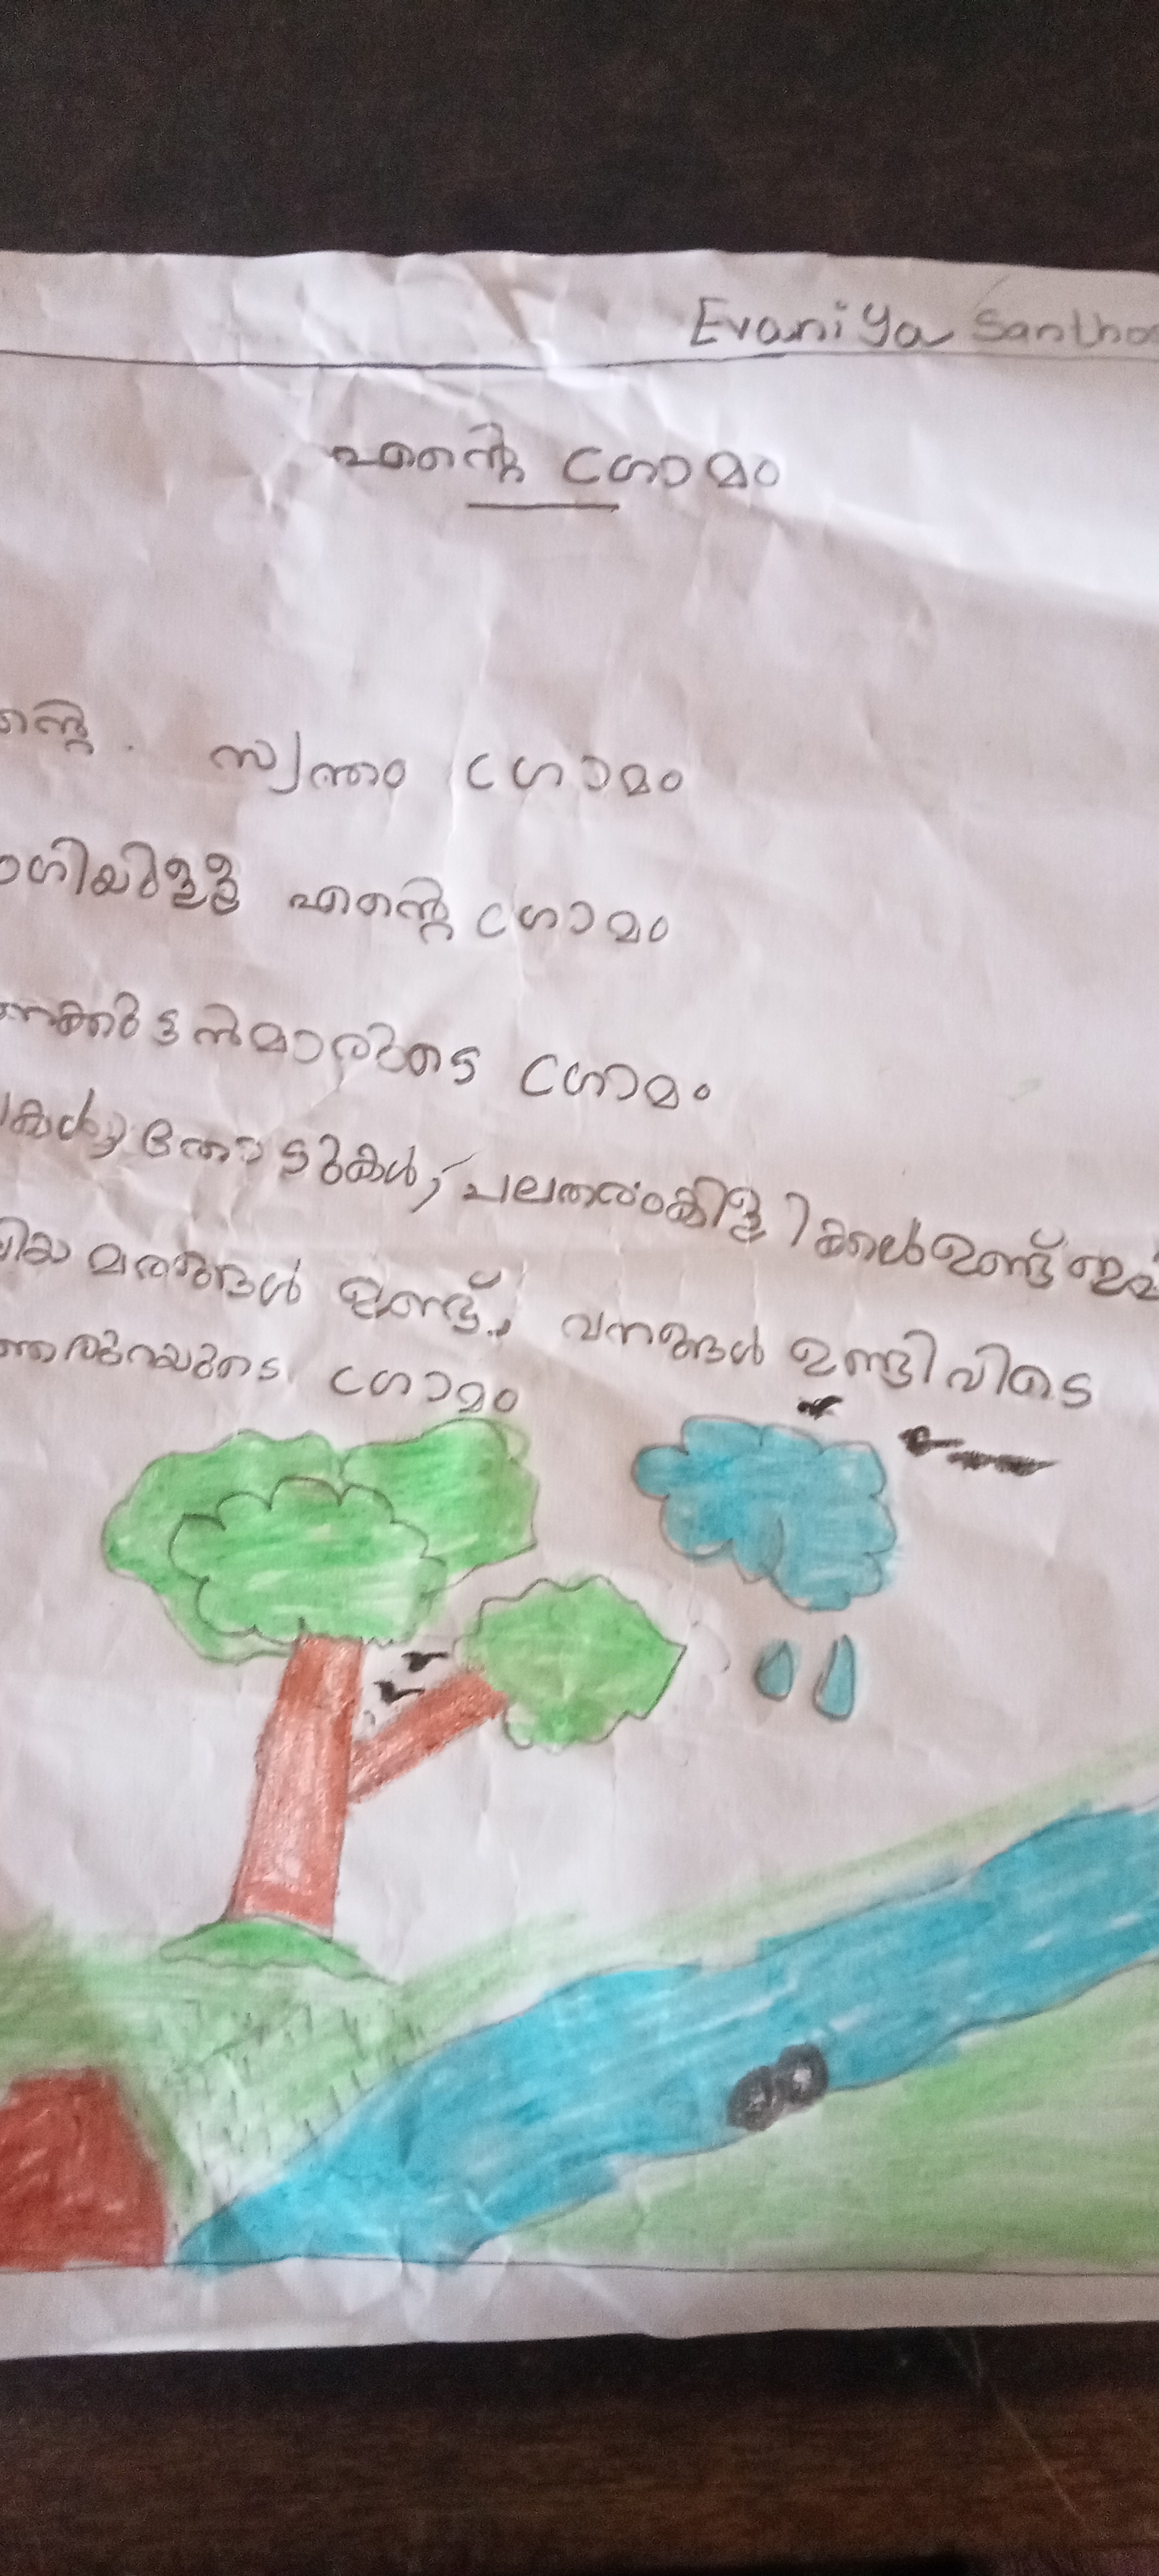 Evaniya Santhos
എന്റെ ഗ്രാമം
ന്റെ . സ്വന്തം ഗ്രാമം
ഗിയുള്ള എന്റെ ഗ്രാമം
ക്കുട്ടൻമാരുടെ ഗ്രാമം
കൾ, തോടുകൾ, പലതരംകിളികൾഉണ്ട്
ിയ മരങ്ങൾ ഉണ്ട്, വനങ്ങൾ ഉണ്ടിവിടെ
ഗ്രാമം